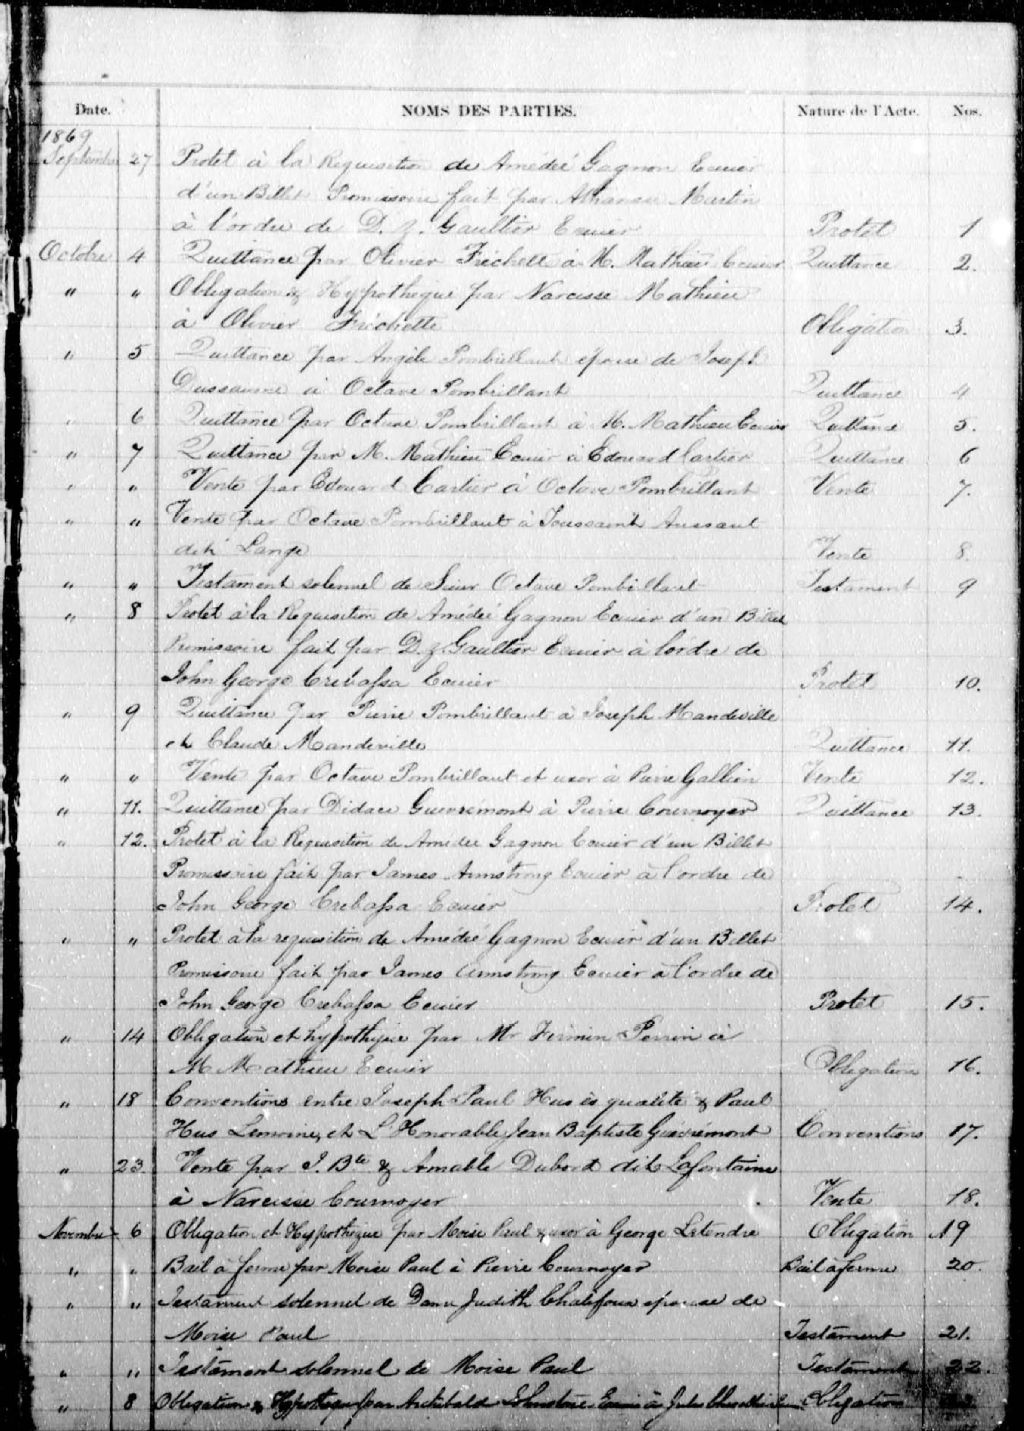 Date. NOMS DES PARTIES. Nature de l'Acte. Nos.
1869
Septembre 27 Protet à la Requisition de Amédéé Gagnon Ecuier
d'un Billet Promissoire fait par Athanase Martin
à l'ordre de D. Z. Gaultier Ecuier Protet 1
Octobre 4 Quittance par Olivier Fréchette à M. Mathieu Ecuier Quittance 2.
" " Obligation & Hypothèque par Narcisse Mathieu
à Olivier Fréchette Obligation 3.
" 5 Quittance par Angèle Pombrillant épouse de Joseph
Dussaume à Octave Pombrillant Quittance 4
" 6 Quittance par Octave Pombrillant à M. Mathieu Ecuier Quittance 5.
" 7 Quittance par M. Mathieu Ecuier à Edouard Cartier Quittance 6
" " Vente par Edouard Cartier à Octave Pombrillant Vente 7.
" " Vente par Octave Pombrillant à Toussaint Aussant
dit Lange Vente 8.
" " Testament solennel de Sieur Octave Pombrillant Testament 9
" 8 Protet à la Requisition de Amédéé Gagnon Ecuier d'un Billet
Promissoire fait par D. Z. Gaultier Ecuier à l'ordre de
John George Crebassa Ecuier Protet 10.
" 9 Quittance par Pierre Pombrillant à Joseph Mandeville
et Claude Mandeville Quittance 11.
" " Vente par Octave Pombrillant et uxor à Pierre Gallien Vente 12.
" 11. Quittance par Didace Guevremont à Pierre Cournoyer Quittance 13.
" 12. Protet à la Requisition de Amédée Gagnon Ecuier d'un Billet
Promissoire fait par James Armstrong Ecuier à l'ordre de
John George Crebassa Ecuier Protet 14.
" " Protet à la requisition de Amédéé Gagnon Ecuier d'un Billet
Promissoire fait par James Armstrong Ecuier à l'ordre de
John George Crebassa Ecuier Protet 15.
" 14 Obligation et hypothèque par Mr Firmin Perrin à
M Mathieu Ecuier Obligation 16.
" 18 Conventions entre Joseph Paul Hus ès qualité & Paul
Hus Lemoine, et L'Honorable Jean Baptiste Guèvremont Conventions 17.
" 23 Vente par J. Bte & Amable Dubord dit Lafontaine
à Narcisse Cournoyer Vente 18.
Novembre 6 Obligation et Hypothèque par Moise Paul & uxor à George Letendre Obligation 19
" " Bail à ferme par Moise Paul à Pierre Cournoyer Bail à ferme 20.
" " Testament solennel de Dame Judith Chalifoux épouse de
Moise Paul Testament 21.
" " Testament solennel de Moise Paul Testament 22.
" 8 Obligation & Hypothèque par Archibald Johnstone Ecuier à Jules Obligation